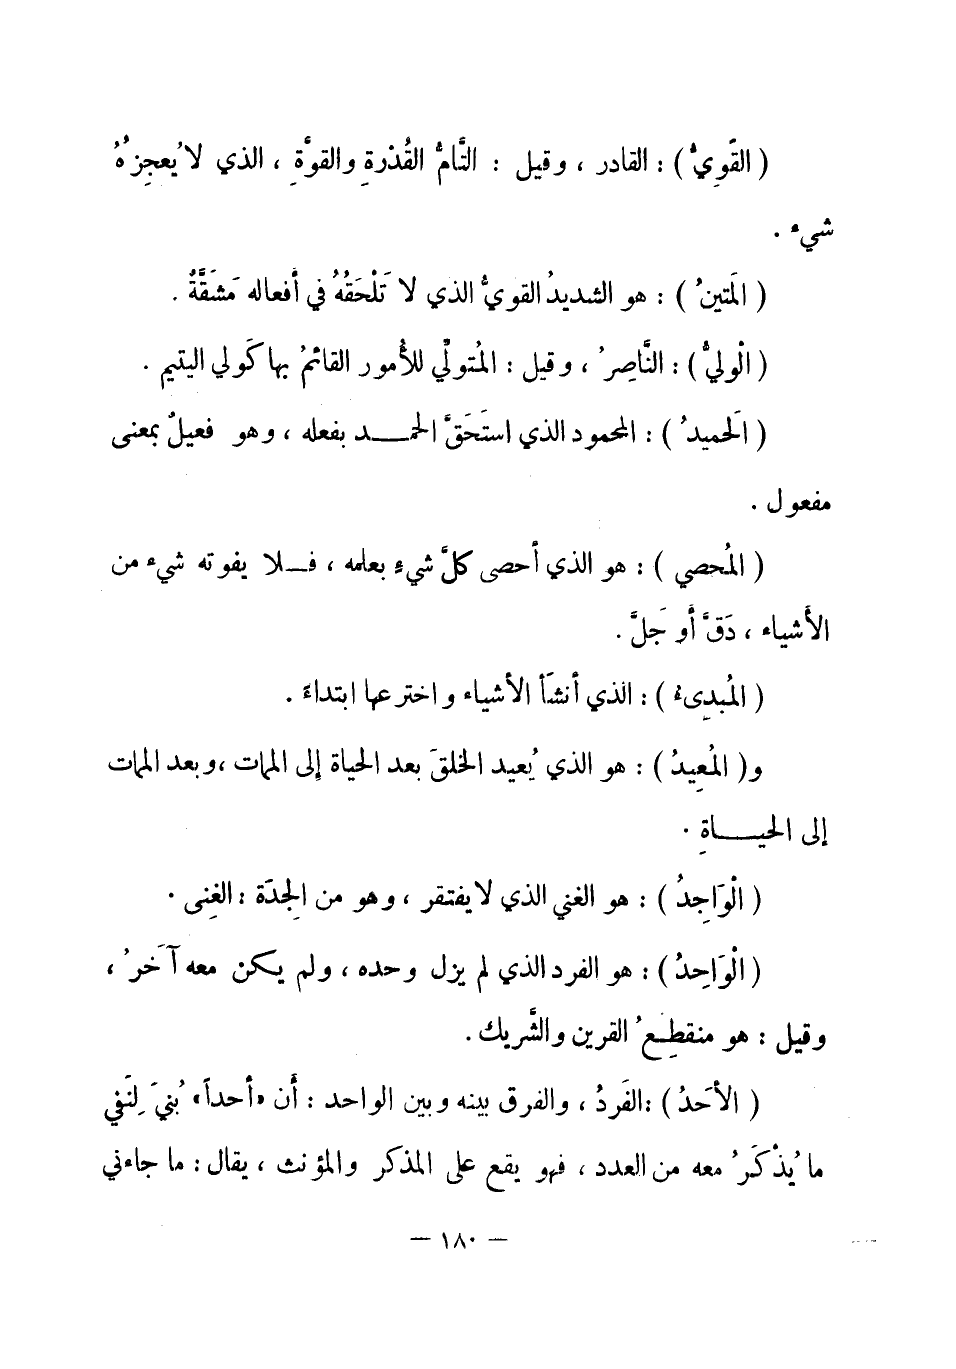 ( القَوِيُّ ) : القادر ، وقيل : التَّامُّ القُدْرةِ والقوَّةِ ، الذي لا يُعجِزُهُ
شيء .
( المَتينُ ) : هو الشديدُ القويُّ الذي لا تَلْحَقُهُ في أفعاله مَشقَّةٌ .
( الْوليُّ ) : النَّاصِرُ ، وقيل : المُتولِّي للأُمور القائمُ بها كَولي اليتيم .
( الَحميدُ ) : المحمود الذي استَحَقَّ الحمــد بفعله ، وهو فعيلٌ بمعنى
مفعول .
( المُحصي ) : هو الذي أحصى كلَّ شيءٍ بعلمه ، فــلا يفوته شيء من
الأشياء ، دَقَّ أو جَلَّ .
( المُبدِىءُ ) : الذي أنشَأ الأشياء واخترعها ابتداءً .
و( المُعِيدُ ) : هو الذي يُعيد الخلقَ بعد الحياة إلى الممات ، وبعد الممات
إلى الحيــــاةِ .
( الْوَاجِدُ ) : هو الغني الذي لا يفتقر ، وهو من الجِدَة : الغِنى .
( الْوَاحِدُ ) : هو الفرد الذي لم يزل وحده ، ولم يكن معه آخَرُ ،
وقيل : هو منقطِعُ القرين والشَّريك .
( الأحَدُ ) : الفَردُ ، والفرق بينه وبين الواحد : أن «أحداً» بُنيَ لِنَفي
ما يُذْكَرُ معه من العدد ، فهو يقع على المذكر والمؤنث ، يقال : ما جاءني
— ١٨٠ —